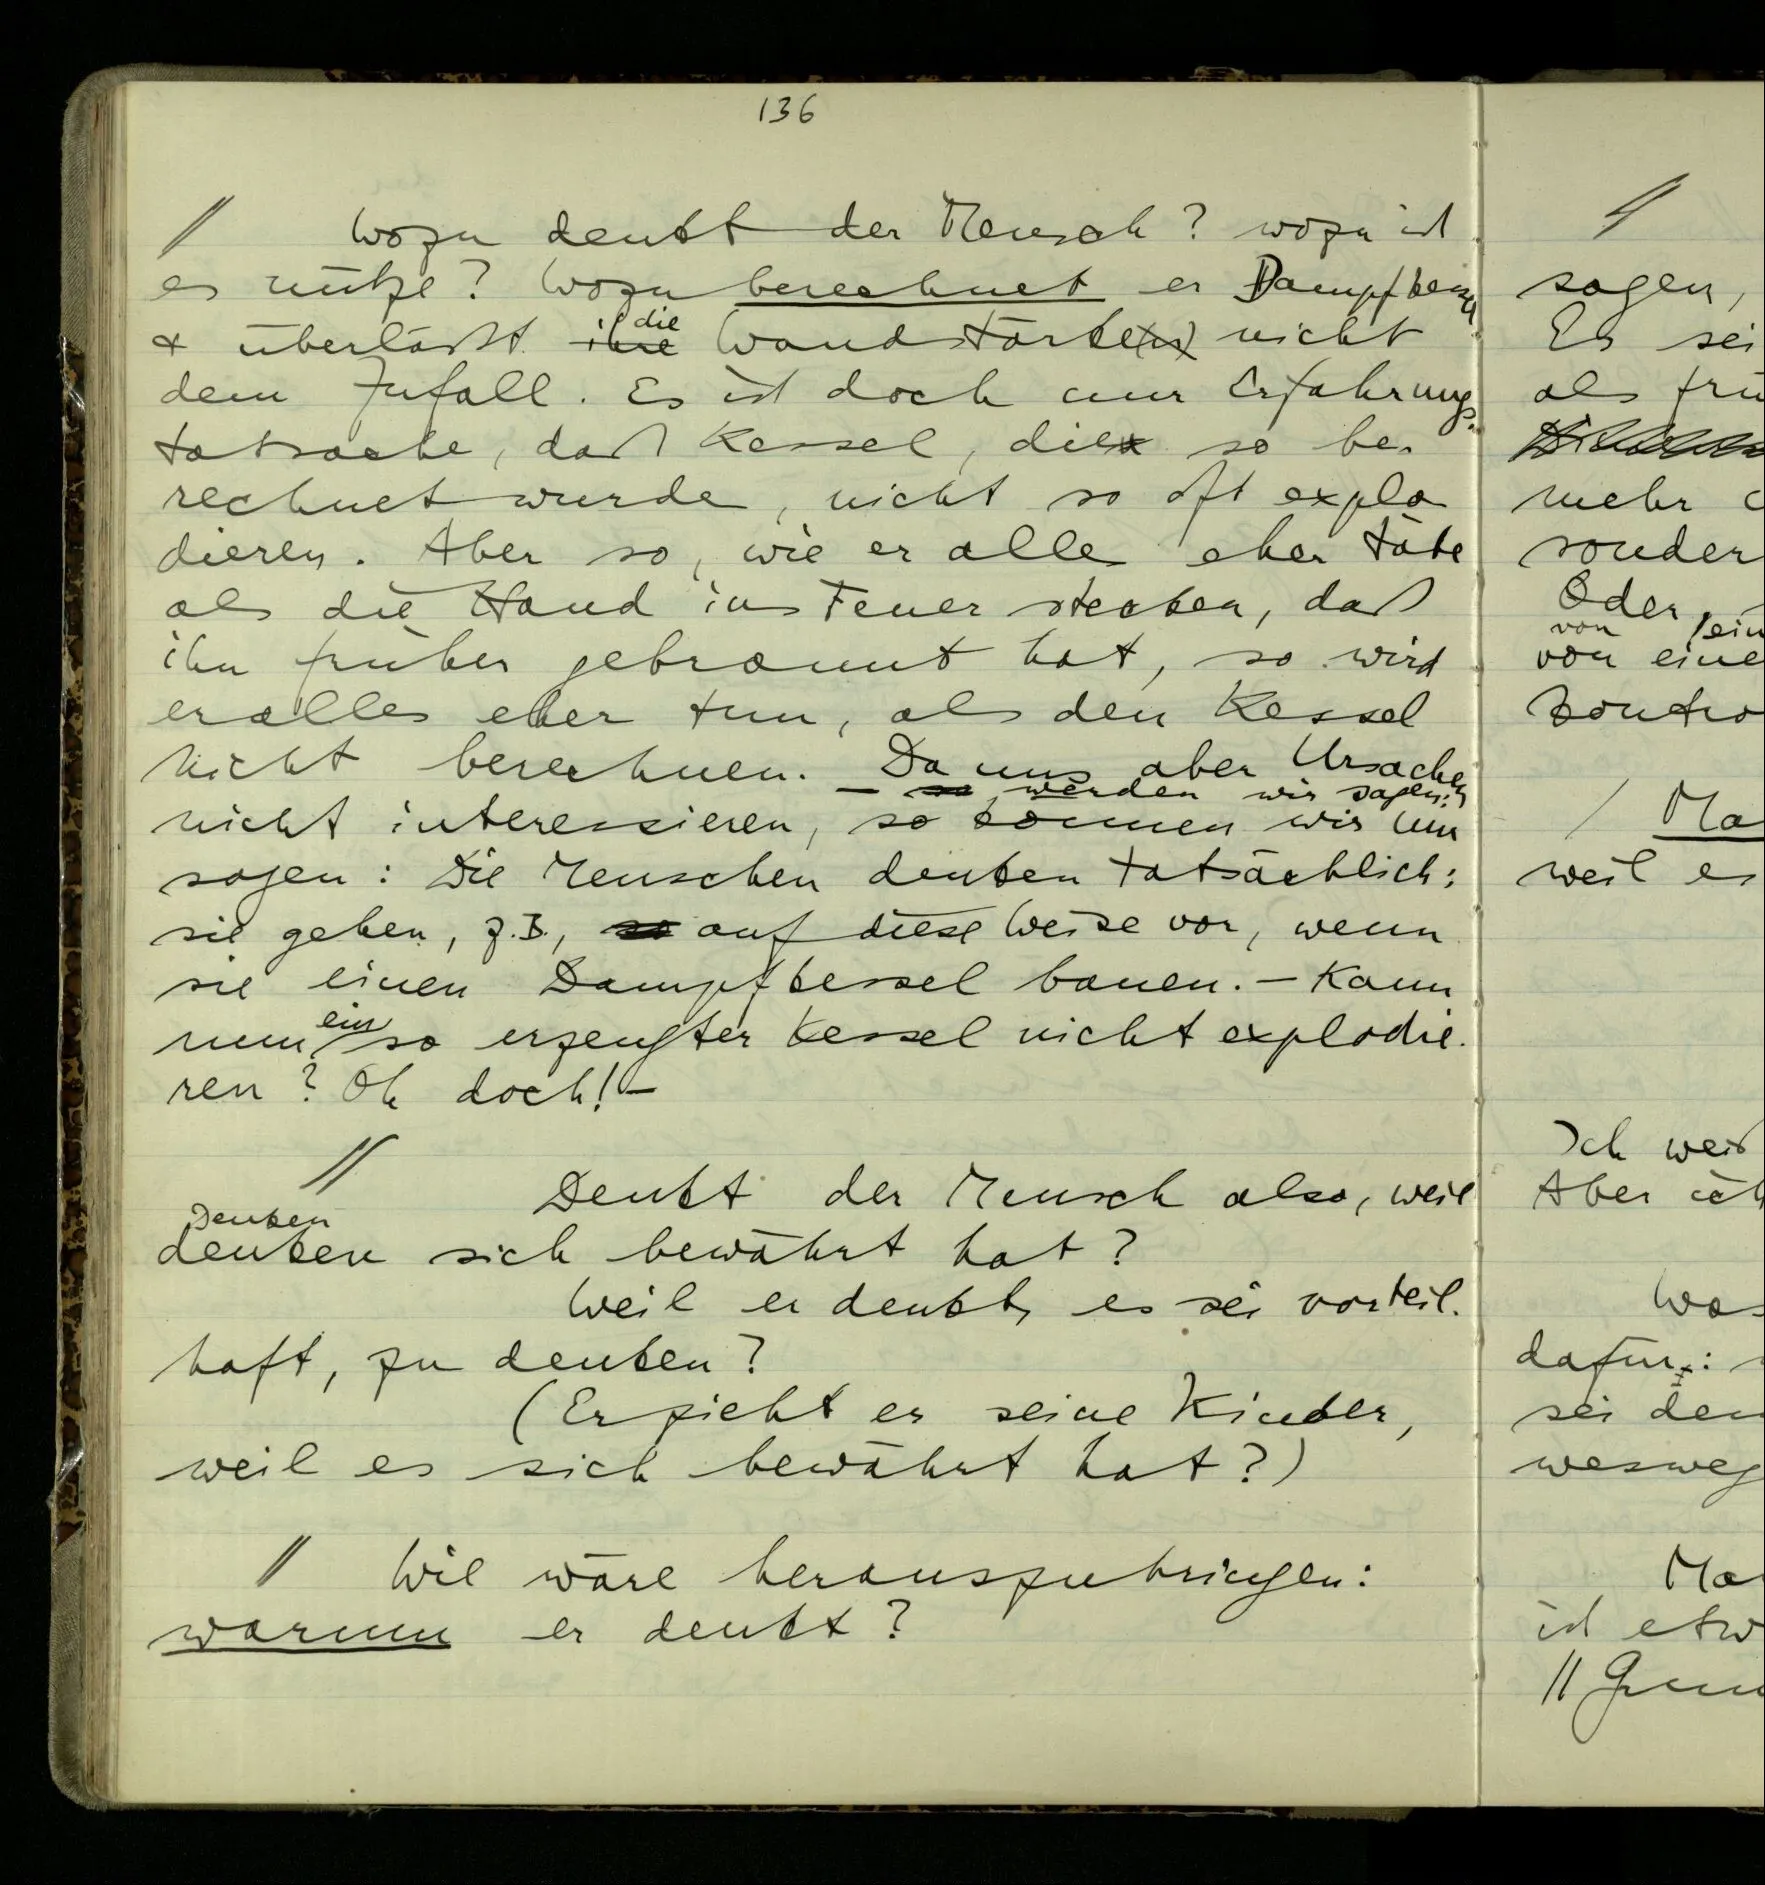 136
// Wozu denkt der Mensch? wozu ist
es nütze? Wozu berechnet er Dampfkessel
& überläßt ihre die Wandstärke(n) nicht
dem Zufall. Es ist doch nur Erfahrungs-
tatsache, daß Kessel, die so be-
rechnet wurde, nicht so oft explo
dieren. Aber so, wie er alle eher täte
als die Hand ins Feuer stecken, daß
ihn früher gebrannt hat, so wird
er alles eher tun, als den Kessel
nicht berechnen. – Da uns aber Ursachen
so werden wir sagen:
nicht interessieren, so können wir nur
sagen: Die Menschen denken tatsächlich:
sie gehen, z.B., so auf diese Weise vor, wenn
sie einen Dampfkessel bauen. – Kann
nun ein so erzeugter Kessel nicht explodie-
ren? Oh doch! –
// Denkt der Mensch also, weil
Denken
denken sich bewährt hat?
Weil er denkt, es sei vorteil-
haft, zu denken?
(Erzieht er seine Kinder,
weil es sich bewährt hat?)
// Wie wäre herauszubringen:
warum er denkt?
sagen,
Es sei
als frü
mehr
sonder
Oder,
von ein
von eine
kontro
/ Ma
weil es
Ich weiß
Aber ich
Was
dafür:
sei den
wesweg
Ma
ist etw
// Grun